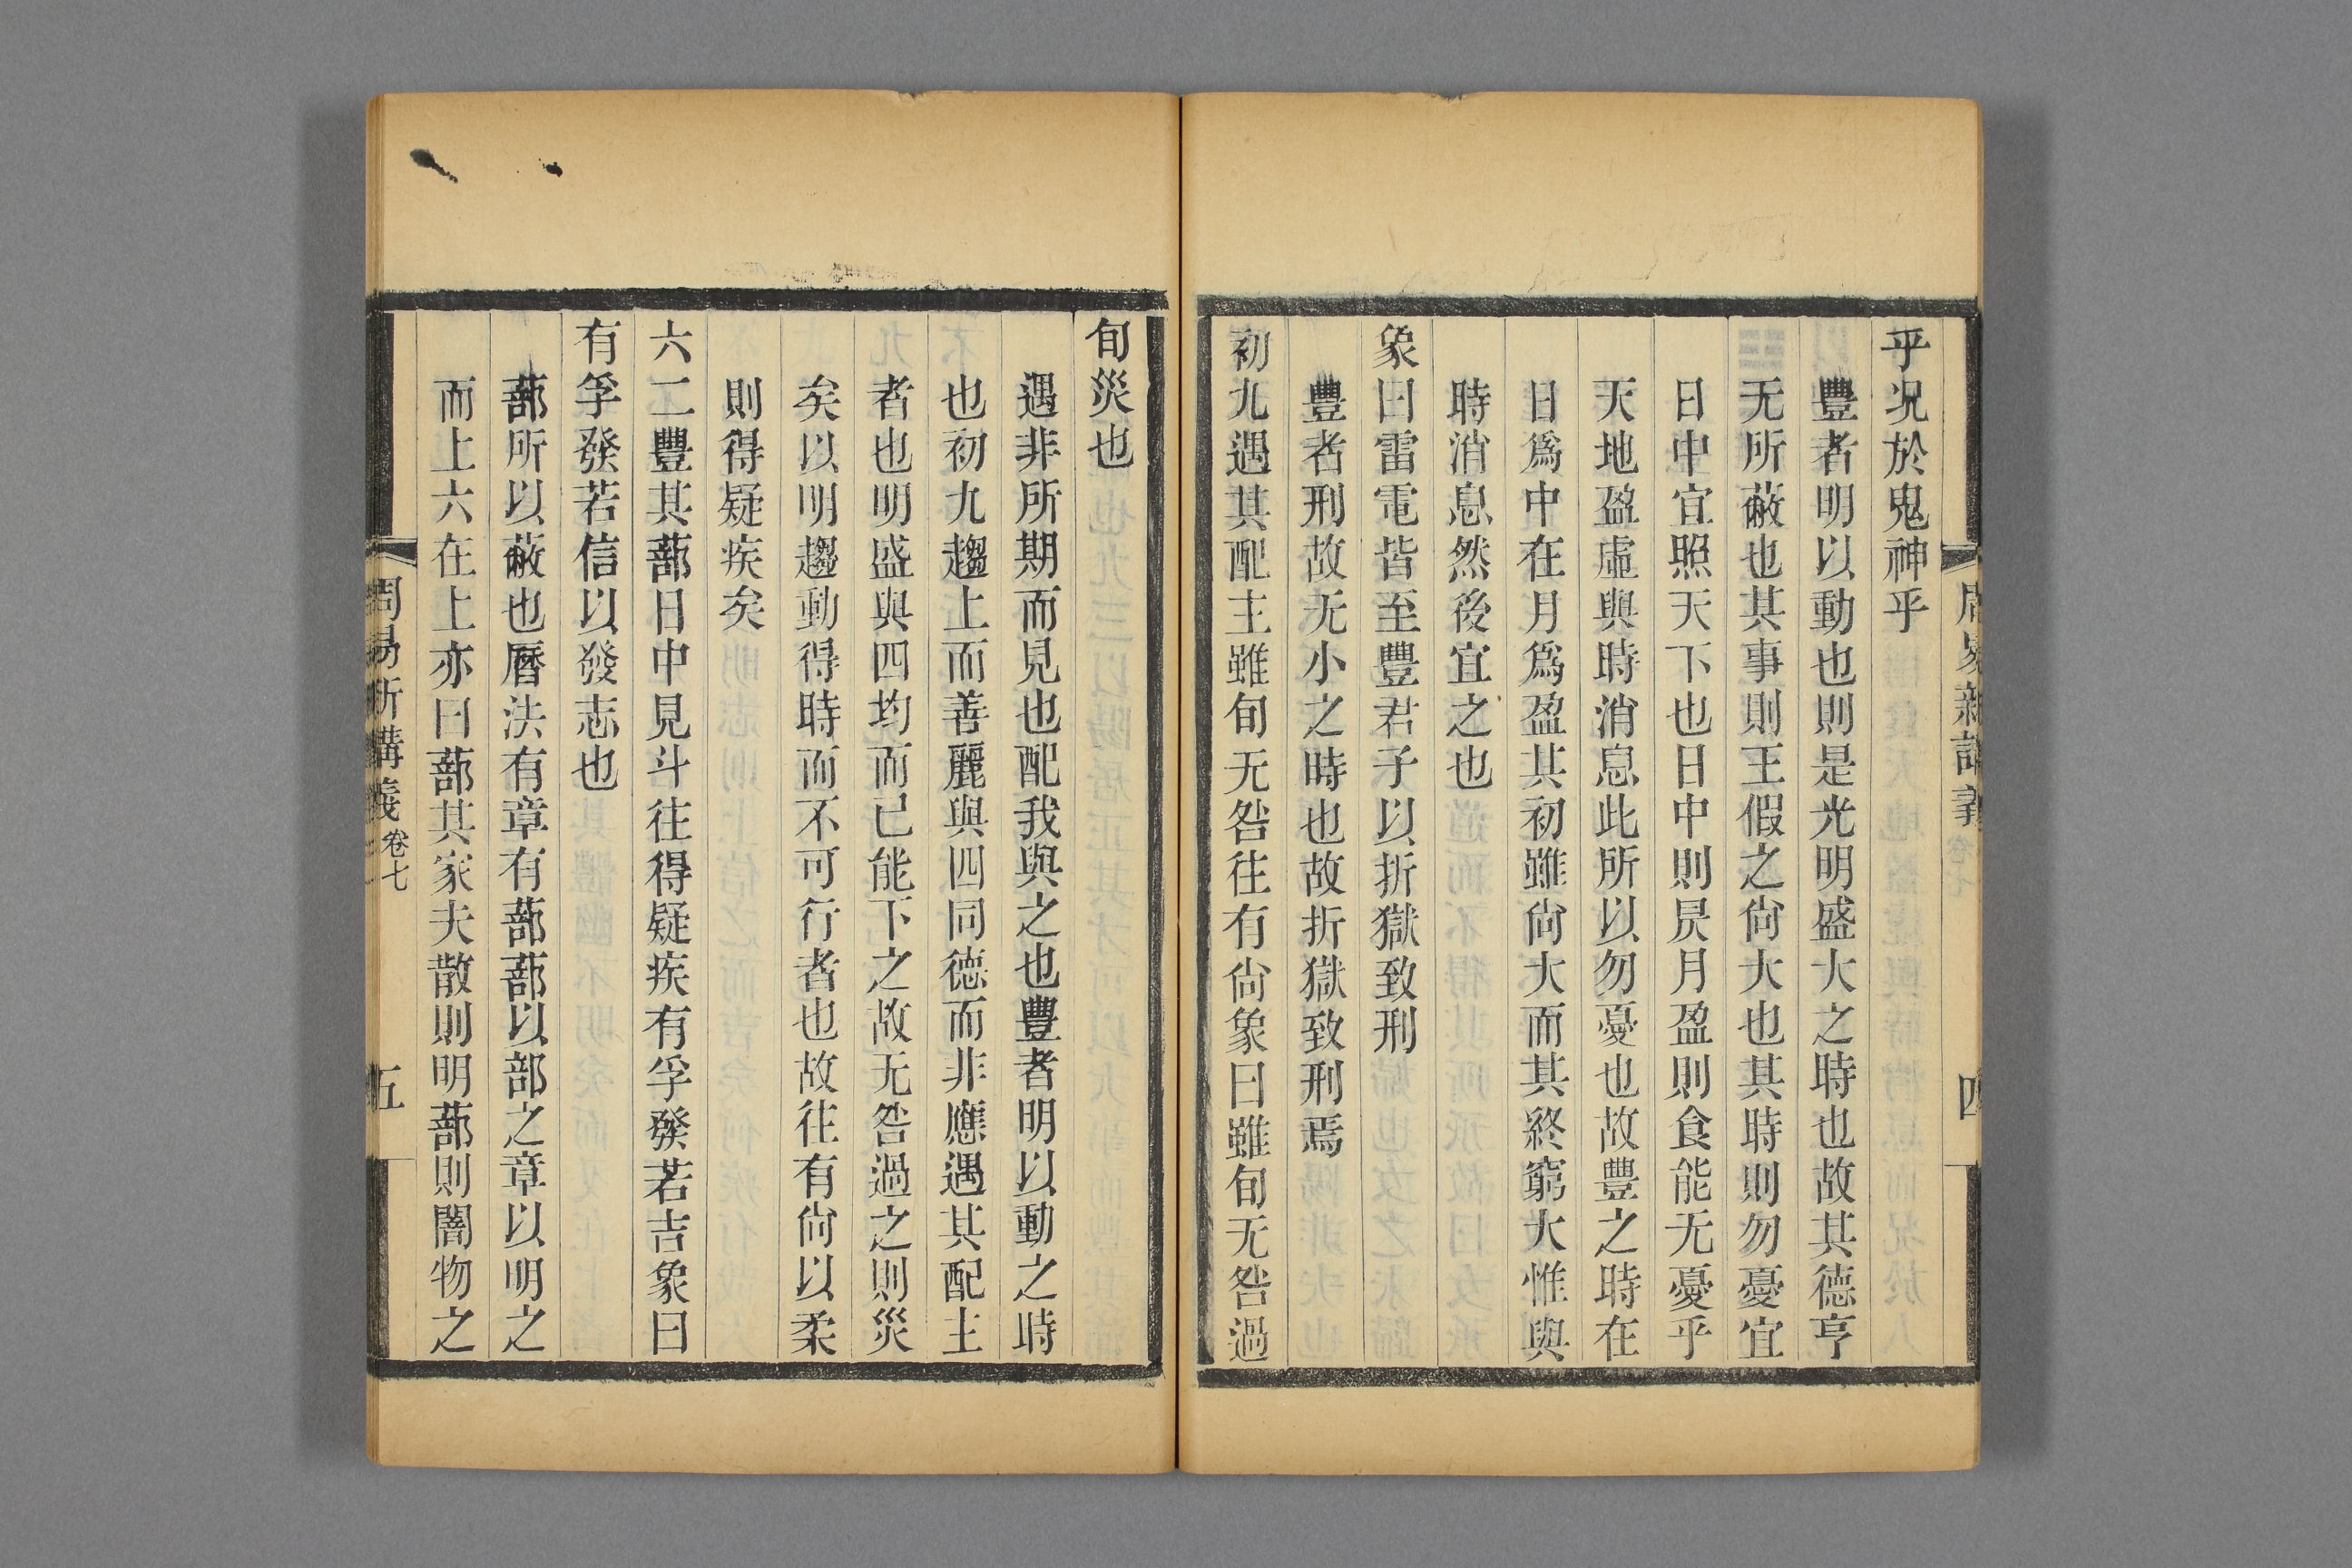 周易新講義
四
乎況於鬼神乎
豐者明以動也則是光明盛大之時也故其德亨
无所蔽也其事則王假之尙大也其時則勿憂宜
日中宜照天下也日中則昃月盈則食能无憂乎
天地盈虛與時消息此所以勿憂也故豐之時在
日爲中在月爲盈其初雖尙大而其終窮大惟與
時消息然後宜之也
象曰雷電皆至豐君子以折獄致刑
豐者刑故无小之時也故折獄致刑焉
初九遇其配主雖旬无咎往有尙象曰雖旬无咎過
旬災也
遇非所期而見也配我與之也豐者明以動之時
也初九趨上而善麗與四同德而非應遇其配主
者也明盛與四均而已能下之故无咎過之則災
矣以明趨動得時而不可行者也故往有尙以柔
則得疑疾矣
六二豐其蔀日中見斗往得疑疾有孚發若吉象曰
有孚發若信以發志也
蔀所以蔽也曆法有章有蔀蔀以部之章以明之
而上六在上亦曰蔀其家夫散則明蔀則闇物之
周易新講義 卷七
五